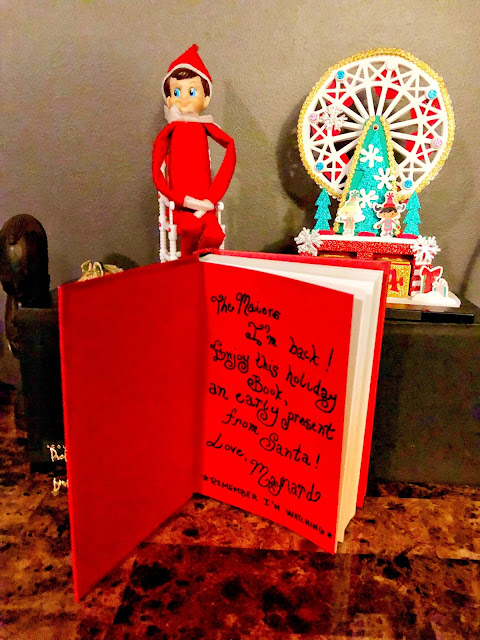 The Maiors
I'm back!
Enjoy this holiday
Book,
an early present
from Santa!
Love, Maynard
*REMEMBER I'M WATCHING*
4